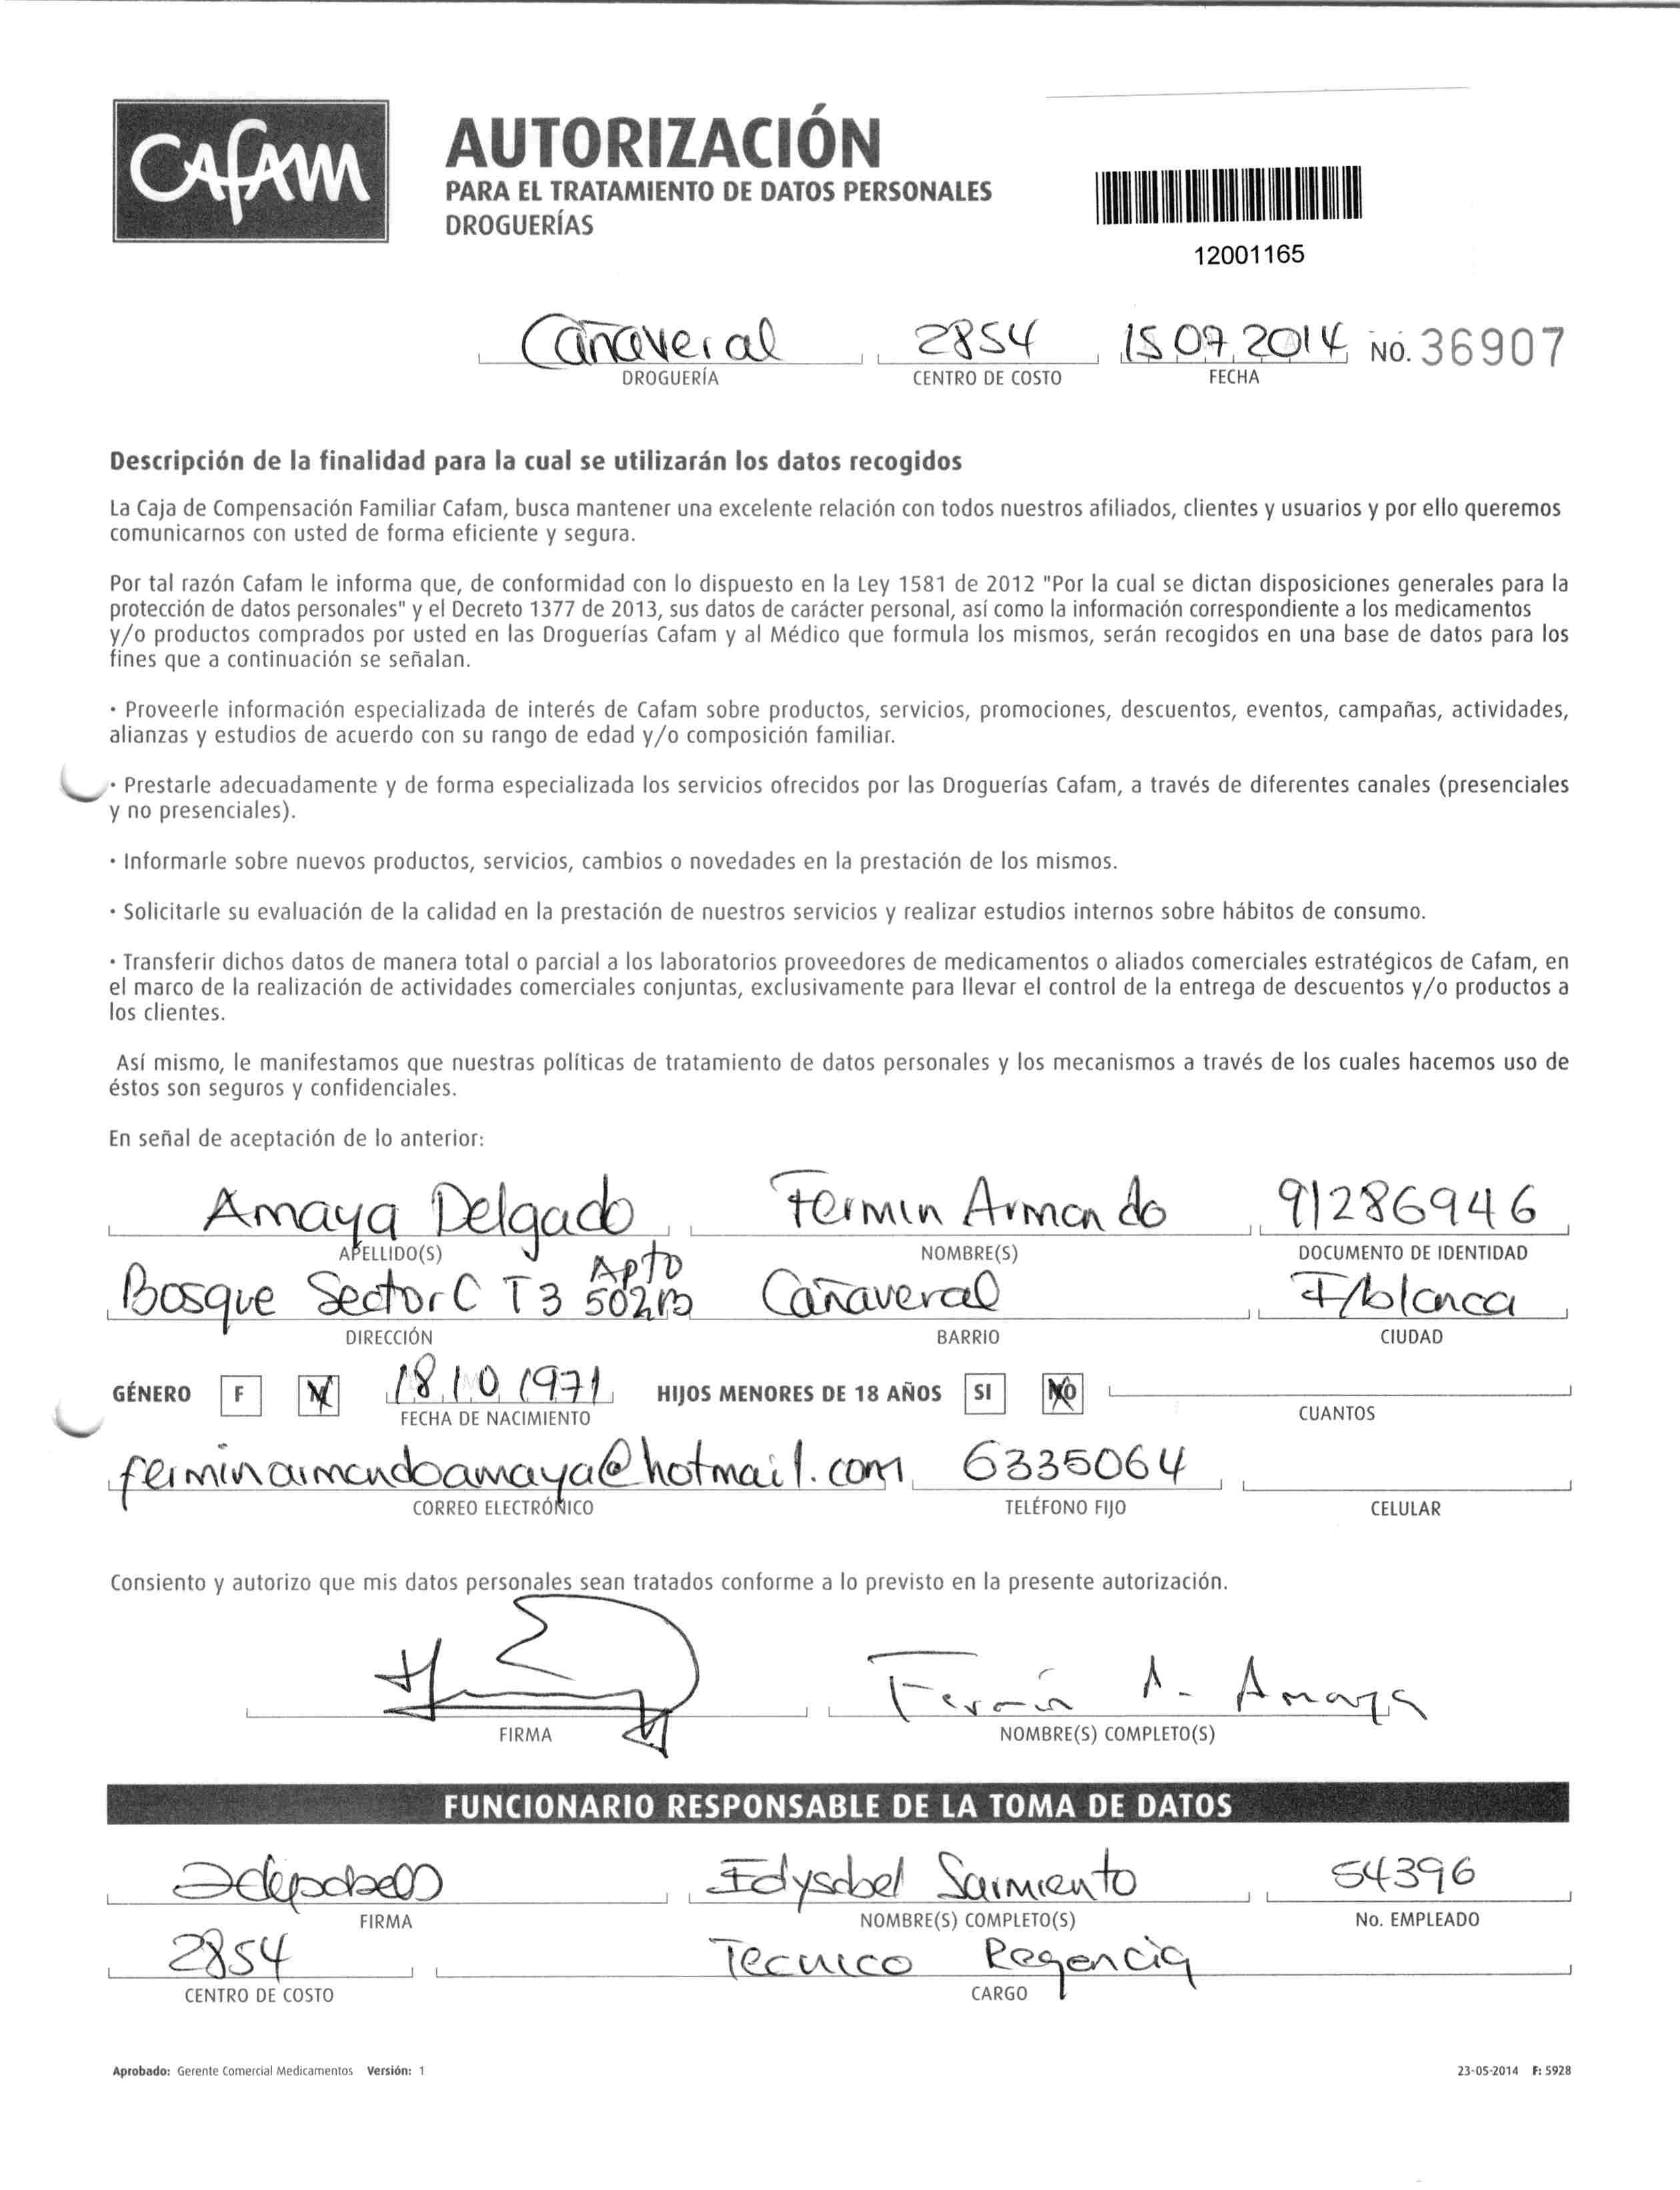 CAFAM
AUTORIZACIÓN
PARA EL TRATAMIENTO DE DATOS PERSONALES
DROGUERÍAS
12001165
Cañaveral 2854 15 07 2014 NO. 36907
DROGUERÍA CENTRO DE COSTO FECHA
Descripción de la finalidad para la cual se utilizarán los datos recogidos
La Caja de Compensación Familiar Cafam, busca mantener una excelente relación con todos nuestros afiliados, clientes y usuarios y por ello queremos
comunicarnos con usted de forma eficiente y segura.
Por tal razón Cafam le informa que, de conformidad con lo dispuesto en la Ley 1581 de 2012 "Por la cual se dictan disposiciones generales para la
protección de datos personales" y el Decreto 1377 de 2013, sus datos de carácter personal, así como la información correspondiente a los medicamentos
y/o productos comprados por usted en las Droguerías Cafam y al Médico que formula los mismos, serán recogidos en una base de datos para los
fines que a continuación se señalan.
· Proveerle información especializada de interés de Cafam sobre productos, servicios, promociones, descuentos, eventos, campañas, actividades,
alianzas y estudios de acuerdo con su rango de edad y/o composición familiar.
· Prestarle adecuadamente y de forma especializada los servicios ofrecidos por las Droguerías Cafam, a través de diferentes canales (presenciales
y no presenciales).
· Informarle sobre nuevos productos, servicios, cambios o novedades en la prestación de los mismos.
· Solicitarle su evaluación de la calidad en la prestación de nuestros servicios y realizar estudios internos sobre hábitos de consumo.
· Transferir dichos datos de manera total o parcial a los laboratorios proveedores de medicamentos o aliados comerciales estratégicos de Cafam, en
el marco de la realización de actividades comerciales conjuntas, exclusivamente para llevar el control de la entrega de descuentos y/o productos a
los clientes.
Así mismo, le manifestamos que nuestras políticas de tratamiento de datos personales y los mecanismos a través de los cuales hacemos uso de
éstos son seguros y confidenciales.
En señal de aceptación de lo anterior:
Amaya Delgado Fermin Armando 91286946
APELLIDO(S) NOMBRE(S) DOCUMENTO DE IDENTIDAD
Bosque Sector C T3 Apto 502B Cañaveral F/blanca
DIRECCIÓN BARRIO CIUDAD
GÉNERO F M 18 10 1971 HIJOS MENORES DE 18 AÑOS SI NO
FECHA DE NACIMIENTO CUANTOS
ferminarmandoamaya@hotmail.com 6335064
CORREO ELECTRÓNICO TELÉFONO FIJO CELULAR
Consiento y autorizo que mis datos personales sean tratados conforme a lo previsto en la presente autorización.
Fermín A. Amaya
FIRMA NOMBRE(S) COMPLETO(S)
FUNCIONARIO RESPONSABLE DE LA TOMA DE DATOS
Idysabel Sarmiento 54396
FIRMA NOMBRE(S) COMPLETO(S) No. EMPLEADO
2854 Tecnico Regencia
CENTRO DE COSTO CARGO
Aprobado: Gerente Comercial Medicamentos Versión: 1 23-05-2014 F: 5928